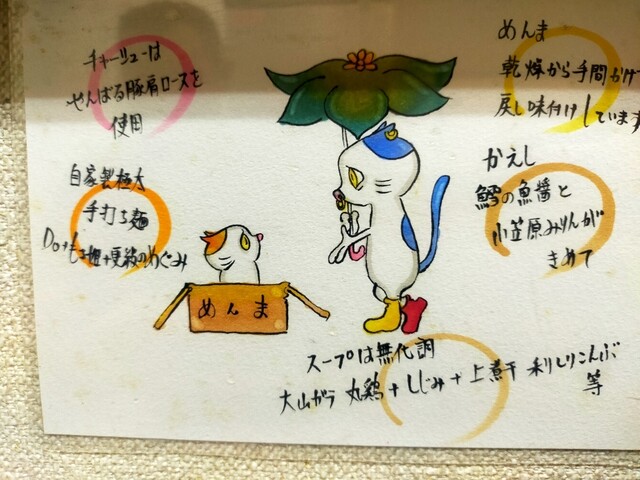 チャーシューは
やんばる豚肩ロースを
使用
めんま
乾燥から手間かけ
戻し味付けしています
自家製極太
手打ち麺
かえし
鱈の魚醤と
小笠原みりんが
きめて
めんま
スープは無化調
大山ガラ 丸鶏+しじみ+上煮干 利しりこんぶ
等